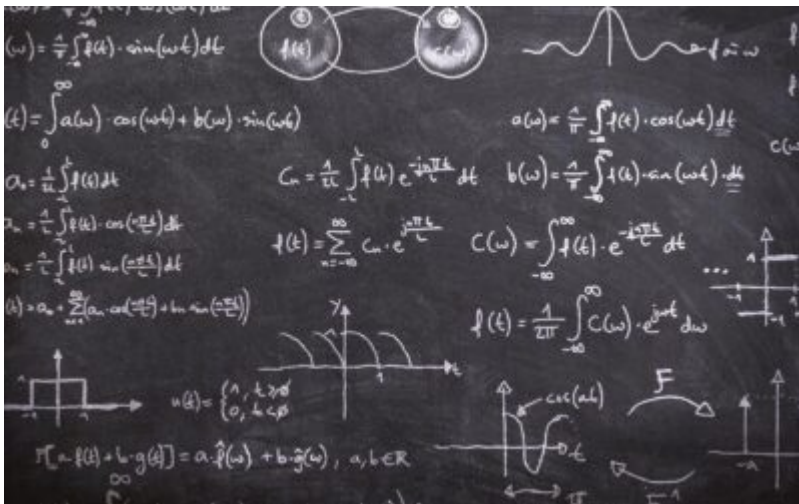 (ω) = 1/π ∫_{-∞}^{∞} f(t) · sin(ωt) dt
f(t)
c(ω)
(t) = ∫_0^∞ a(ω) · cos(ωt) + b(ω) · sin(ωt)
a(ω) = 1/π ∫_{-∞}^{∞} f(t) · cos(ωt) dt
a₀ = 1/2L ∫_{-L}^{L} f(t) dt
Cn = 1/2L ∫_{-L}^{L} f(t) e^{-jnπt/L} dt
b(ω) = 1/π ∫_{-∞}^{∞} f(t) · sin(ωt) · dt
c(ω
an = 1/L ∫_{-L}^{L} f(t) · cos(nπt/L) dt
f(t) = ∑_{n=-∞}^{∞} Cn · e^{jnπt/L}
C(ω) = ∫_{-∞}^{∞} f(t) · e^{-jnπt/L} dt
bn = 1/L ∫_{-L}^{L} f(t) sin(nπt/L) dt
(t) = a₀ + ∑_{n=1}^{∞} (an · cos(nπt/L) + bn sin(nπt/L))
f(t) = 1/2π ∫_{-∞}^{∞} C(ω) · e^{jωt} dω
y
1
t
1
-1
-1 1
u(t) = {1, t≥0
0, t<0
cos(at)
t
F
-A
F[a·f(t) + b·g(t)] = a·f̂(ω) + b·ĝ(ω), a,b∈R
π